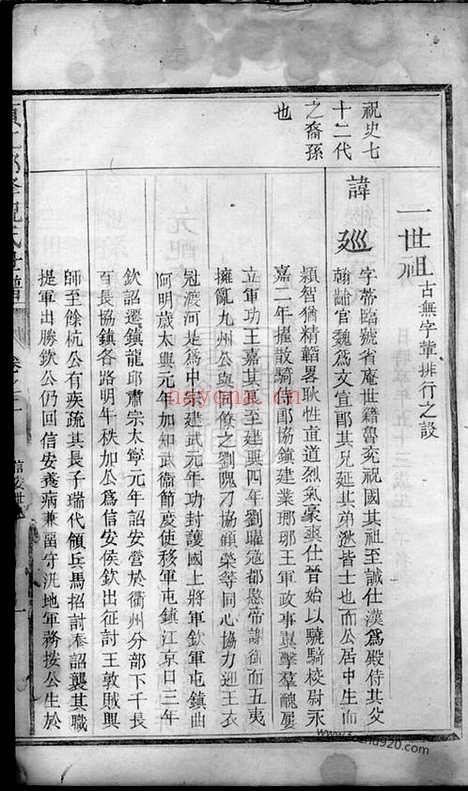 一世祖 古無字輩排行之設
祝史七
十二代
之裔孫
也
諱廵
字蒂臨號省庵世籍魯兗祝國其祖至誠仕漢爲殿侍其父
翰詶官魏爲文宜郎其兄延其弟湤皆士也而公居中生而
穎智猶精韜畧耿性直道烈氣豪爽仕晉始以驍騎校尉永
嘉二年擢散騎侍郎協鎮建業瑯琊王軍政事異擊羣醜屢
立軍功王嘉其才至建興四年劉曜冦都愍帝謝御而五夷
擁亂九州公與同僚之劉隗刁協顧榮等同心協力迎王衣
冠渡河是爲中宗建武元年功封護國上將軍欽軍屯鎮曲
阿明歲太興元年加知武衞節度使移軍屯鎮江京口三年
欽詔遷鎮龍邱肅宗太寧元年詔安營於衢州分部下千長
百長協鎮各路明年秩加公爲信安侯欽出征討王敦賊與
師至餘杭公有疾疏其長子瑞代領兵馬招討奉詔襲其職
提軍出勝欽公仍回信安養病兼留守汛地軍務按公生於
氏世譜
卷之一
信安世
一
read.nona.com
www.fozhu920.com